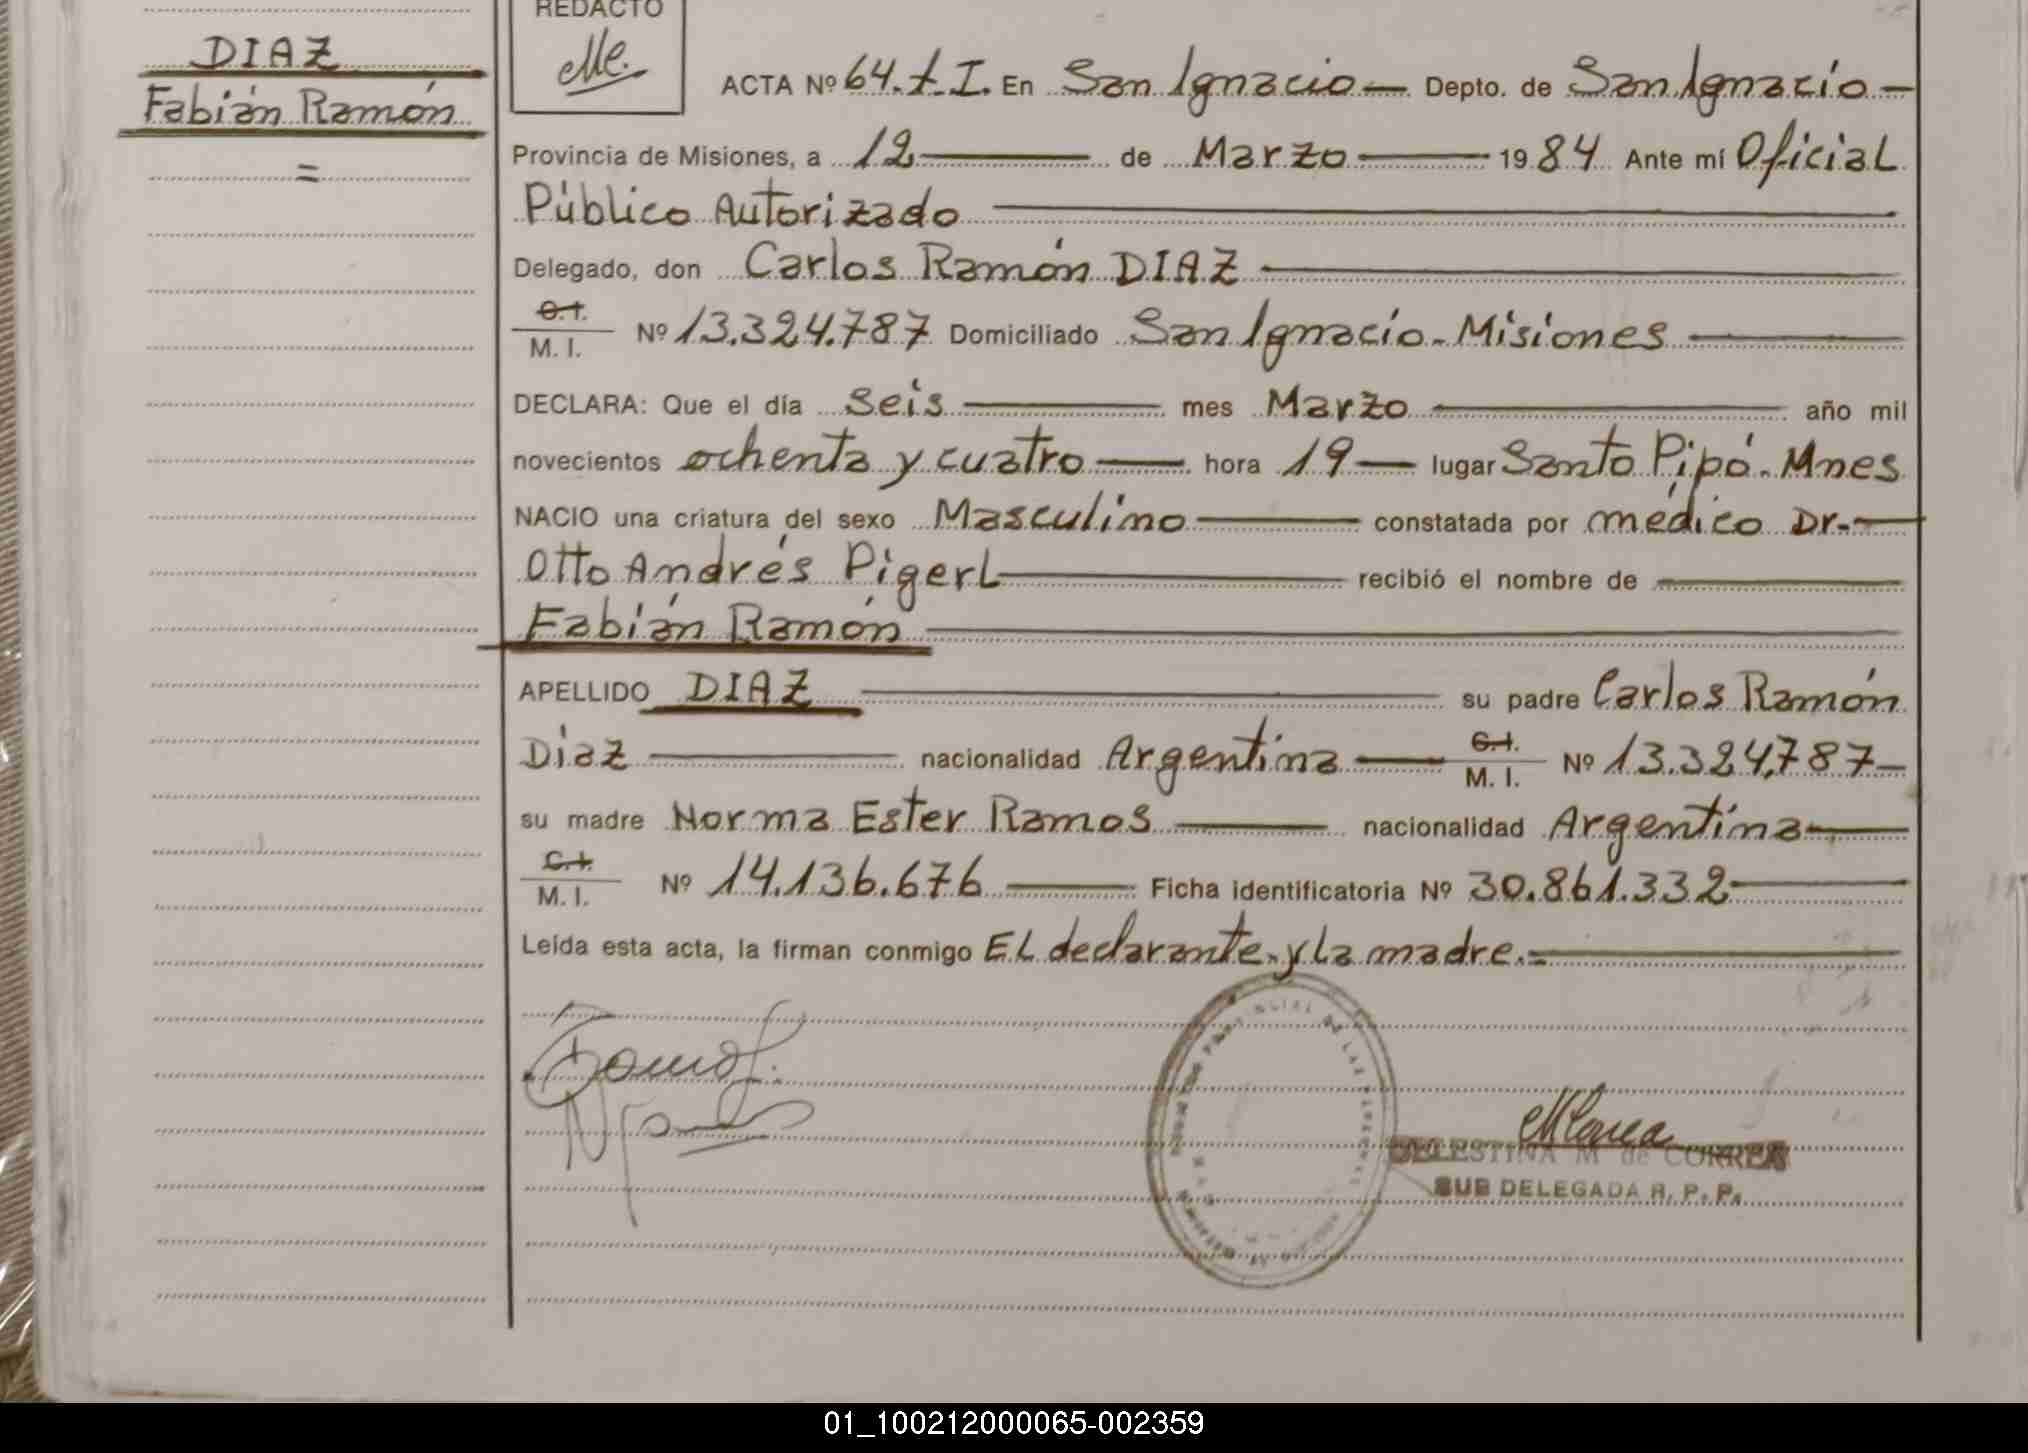 DIAZ
Fabián Ramón
=
REDACTO
ACTA Nº 64.t.I. En San Ignacio Depto. de San Ignacio
Provincia de Misiones, a 12 de Marzo 1984 Ante mí Oficial
Público Autorizado
Delegado, don Carlos Ramón DIAZ
C.I.
M. I. Nº 13.324.787 Domiciliado San Ignacio - Misiones
DECLARA: Que el día seis mes Marzo año mil
novecientos ochenta y cuatro hora 19 lugar Santo Pipó - Mnes
NACIO una criatura del sexo Masculino constatada por médico Dr.
Otto Andrés Pigerl recibió el nombre de
Fabián Ramón
APELLIDO DIAZ su padre Carlos Ramón
Díaz nacionalidad Argentina C.I. M. I. Nº 13.324.787
su madre Norma Ester Ramos nacionalidad Argentina
C.I.
M. I. Nº 14.136.676 Ficha identificatoria Nº 30.861.332
Leída esta acta, la firman conmigo El declarante y la madre.=
CELESTINA M de CORREA
SUB DELEGADA R. P. P.
01_100212000065-002359